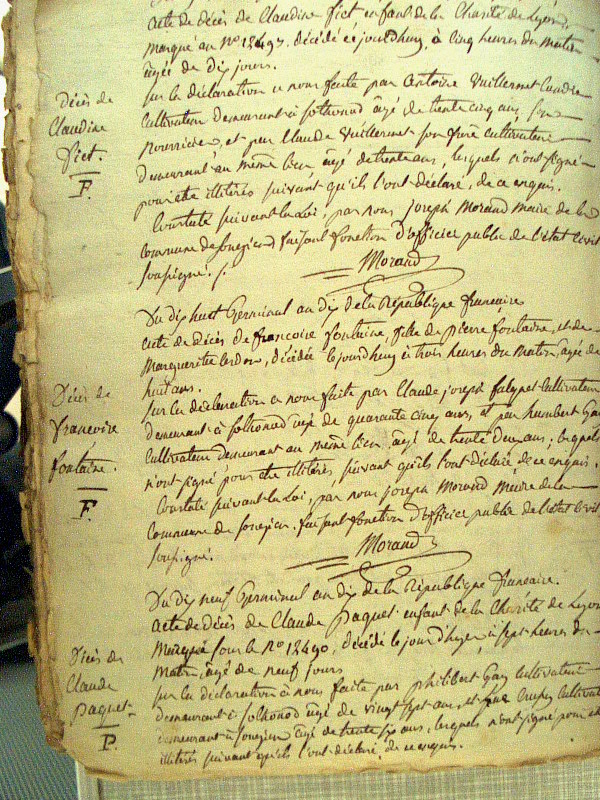 acte de décès de Claudine fiet enfant de la Charité de Lyon
marqué au N° 18497. décédé cejourdhuy, à Cinq heures du Matin
agée de Dix jours.
Sur la déclaration a nous faite par Antoine Vuillermet
Cultivateur demeurant à Solhonod âgé de trente cinq ans, son
nourricier, et par Claude Vuillermet son frere Cultivateur
demeurant au même lieu âgé de trente ans, lesquels n'ont signé
pour être illitérés suivant qu'ils l'ont déclaré, de ce enquis.
Constaté suivant la Loi, par nous joseph Morand Maire de la
Commune de faisant fonction d'officier public de l'état Civil
soussigné.
Morand
Décès de
Claudine
fiet.
F.
Du dix huit Germinal an dix de la République française
acte de décès de francoise fontaine, fille de pierre fontaine, et de
Marguerite décédée lejourdhuy à trois heures du Matin, agée de
huit ans.
Sur la déclaration a nous faite par Claude joseph Cultivateur
demeurant à Solhonod agé de quarante cinq ans, et par humbert Gay
Cultivateur demeurant au même lieu âgé de trente deux ans, lesquels
n'ont signé pour être illitérés, suivant qu'ils l'ont déclaré, de ce enquis.
Constaté suivant la Loi, par nous joseph Morand Maire de la
Commune de faisant fonction d'officier public de l'état Civil
soussigné.
Morand
Décès de
francoise
fontaine.
F.
Du dix neuf Germinal an dix de la République francaise.
acte de Décès de Claude paquet enfant de la Charité de Lyon
Marqué sous le N° 18490, décédé le jour d'hyer, à sept heures du
Matin, agé de neuf jours
Sur la déclaration à nous faite par philibert Gay Cultivateur
demeurant à Solhonod agé de vingt sept ans, et par Cultivateur
demeurant à agé de trente ans, lesquels n'ont signé pour être
illitérés suivant qu'ils l'ont déclaré, de ce enquis.
Décès de
Claude
paquet
P.